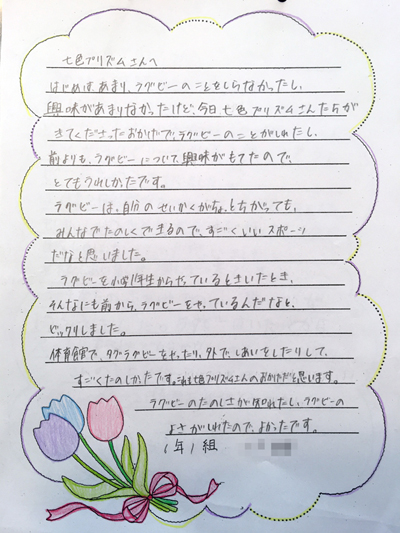 七色プリズムさんへ
はじめは、あまり、ラグビーのことをしらなかったし、
興味があまりなかったけど、今日七色プリズムさんたちが
きてくださったおかげで、ラグビーのことがしれたし、
前よりも、ラグビーについて、興味がもてたので、
とてもうれしかったです。
ラグビーは、自分のせいかくがちょっとちがっても、
みんなでたのしくできるので、すごくいいスポーツ
だなと思いました。
ラグビーを小学1年生からやっているときいたとき、
そんなにも前から、ラグビーをやっているんだなと、
ビックリしました。
体育館で、タグラグビーをやったり、外で、しあいをしたりして、
すごくたのしかったです。これも七色プリズムさんのおかげだと思います。
ラグビーのたのしさが知れたし、ラグビーの
よさがしれたので、よかったです。
1年1組